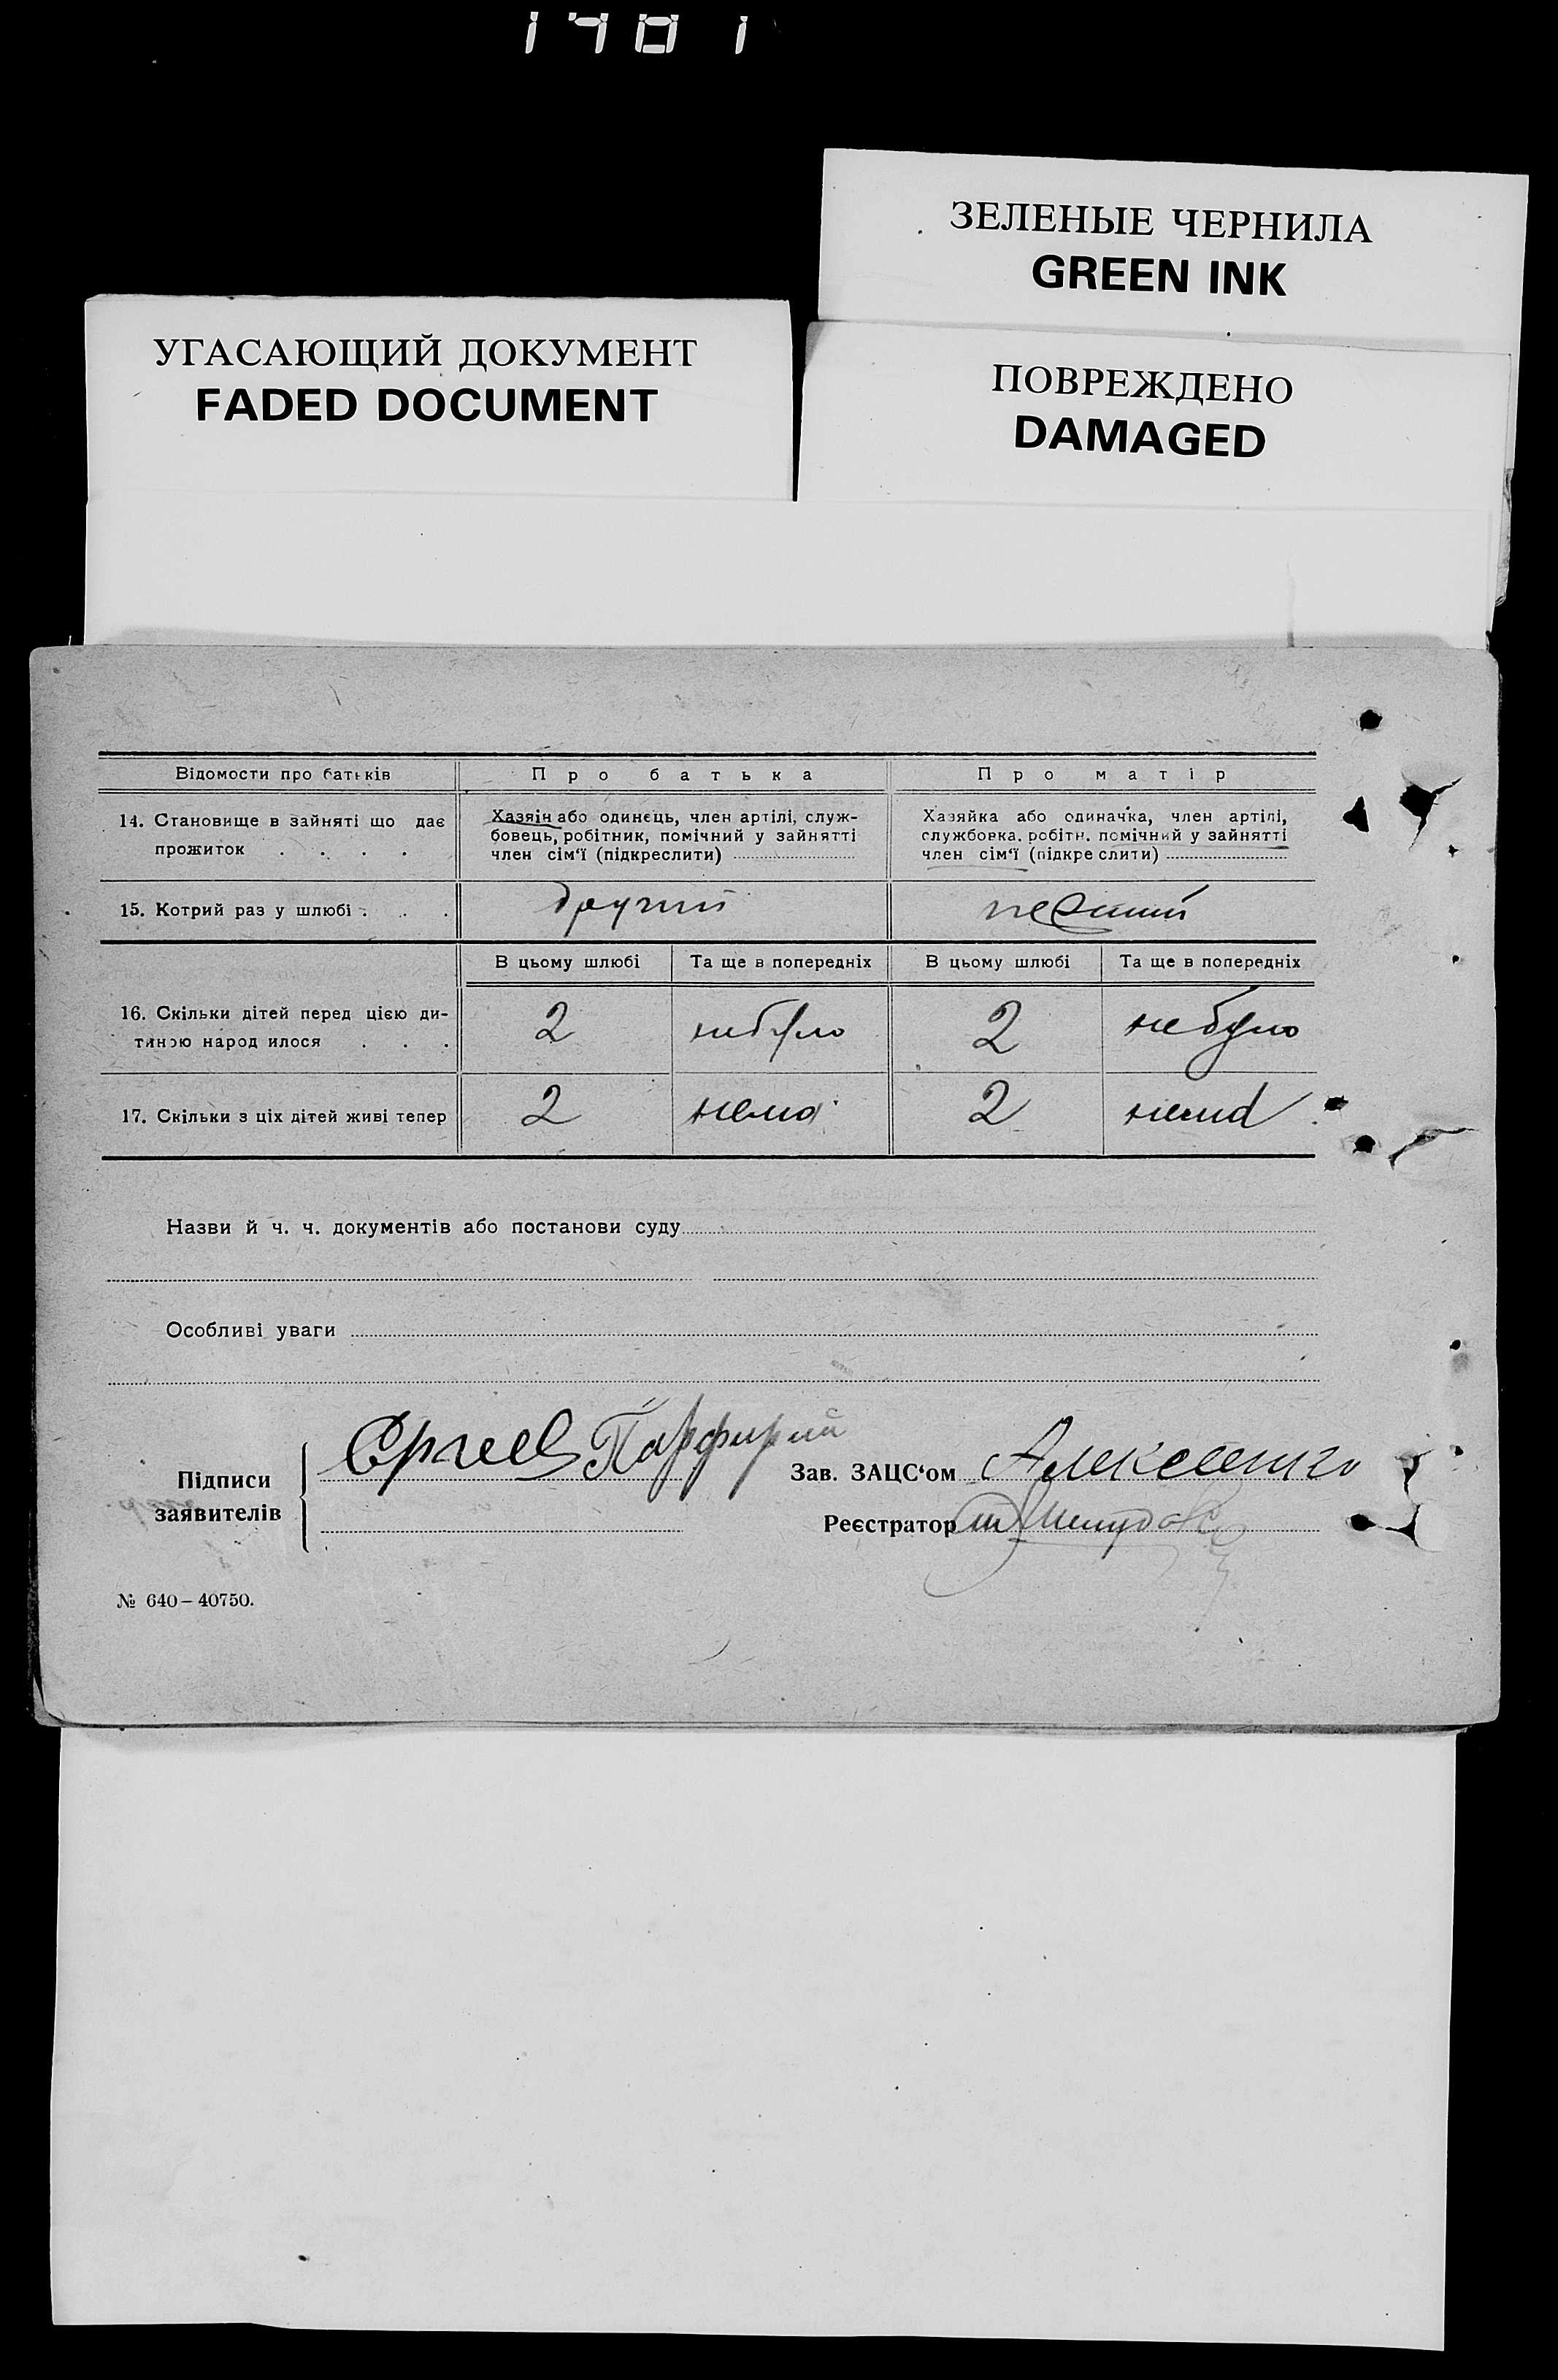 ЗЕЛЕНЫЕ ЧЕРНИЛА
GREEN INK
УГАСАЮЩИЙ ДОКУМЕНТ
FADED DOCUMENT
ПОВРЕЖДЕНО
DAMAGED
Відомости про батьків
Про батька
Про матір
14. Становище в зайняті що дає
прожиток . . . .
Хазяін або одинєць, член артілі, служ-
бовець, робітник, помічний у зайнятті
член сім‘ї (підкреслити)
Хазяйка або одиначка, член артілі,
службовка, робітн. помічний у зайнятті
член сім‘ї (підкреслити)
15. Котрий раз у шлюбі . . .
другий
перший
В цьому шлюбі
Та ще в попередніх
В цьому шлюбі
Та ще в попередніх
16. Скільки дітей перед цією ди-
тиною народилося . . .
2
небуло
2
небуло
17. Скільки з ціх дітей живі тепер
2
нема
2
нема
Назви й ч. ч. документів або постанови суду
Особливі уваги
Підписи
заявителів
Парфирий
Зав. ЗАЦС‘ом
Реєстратор
№ 640–40750.